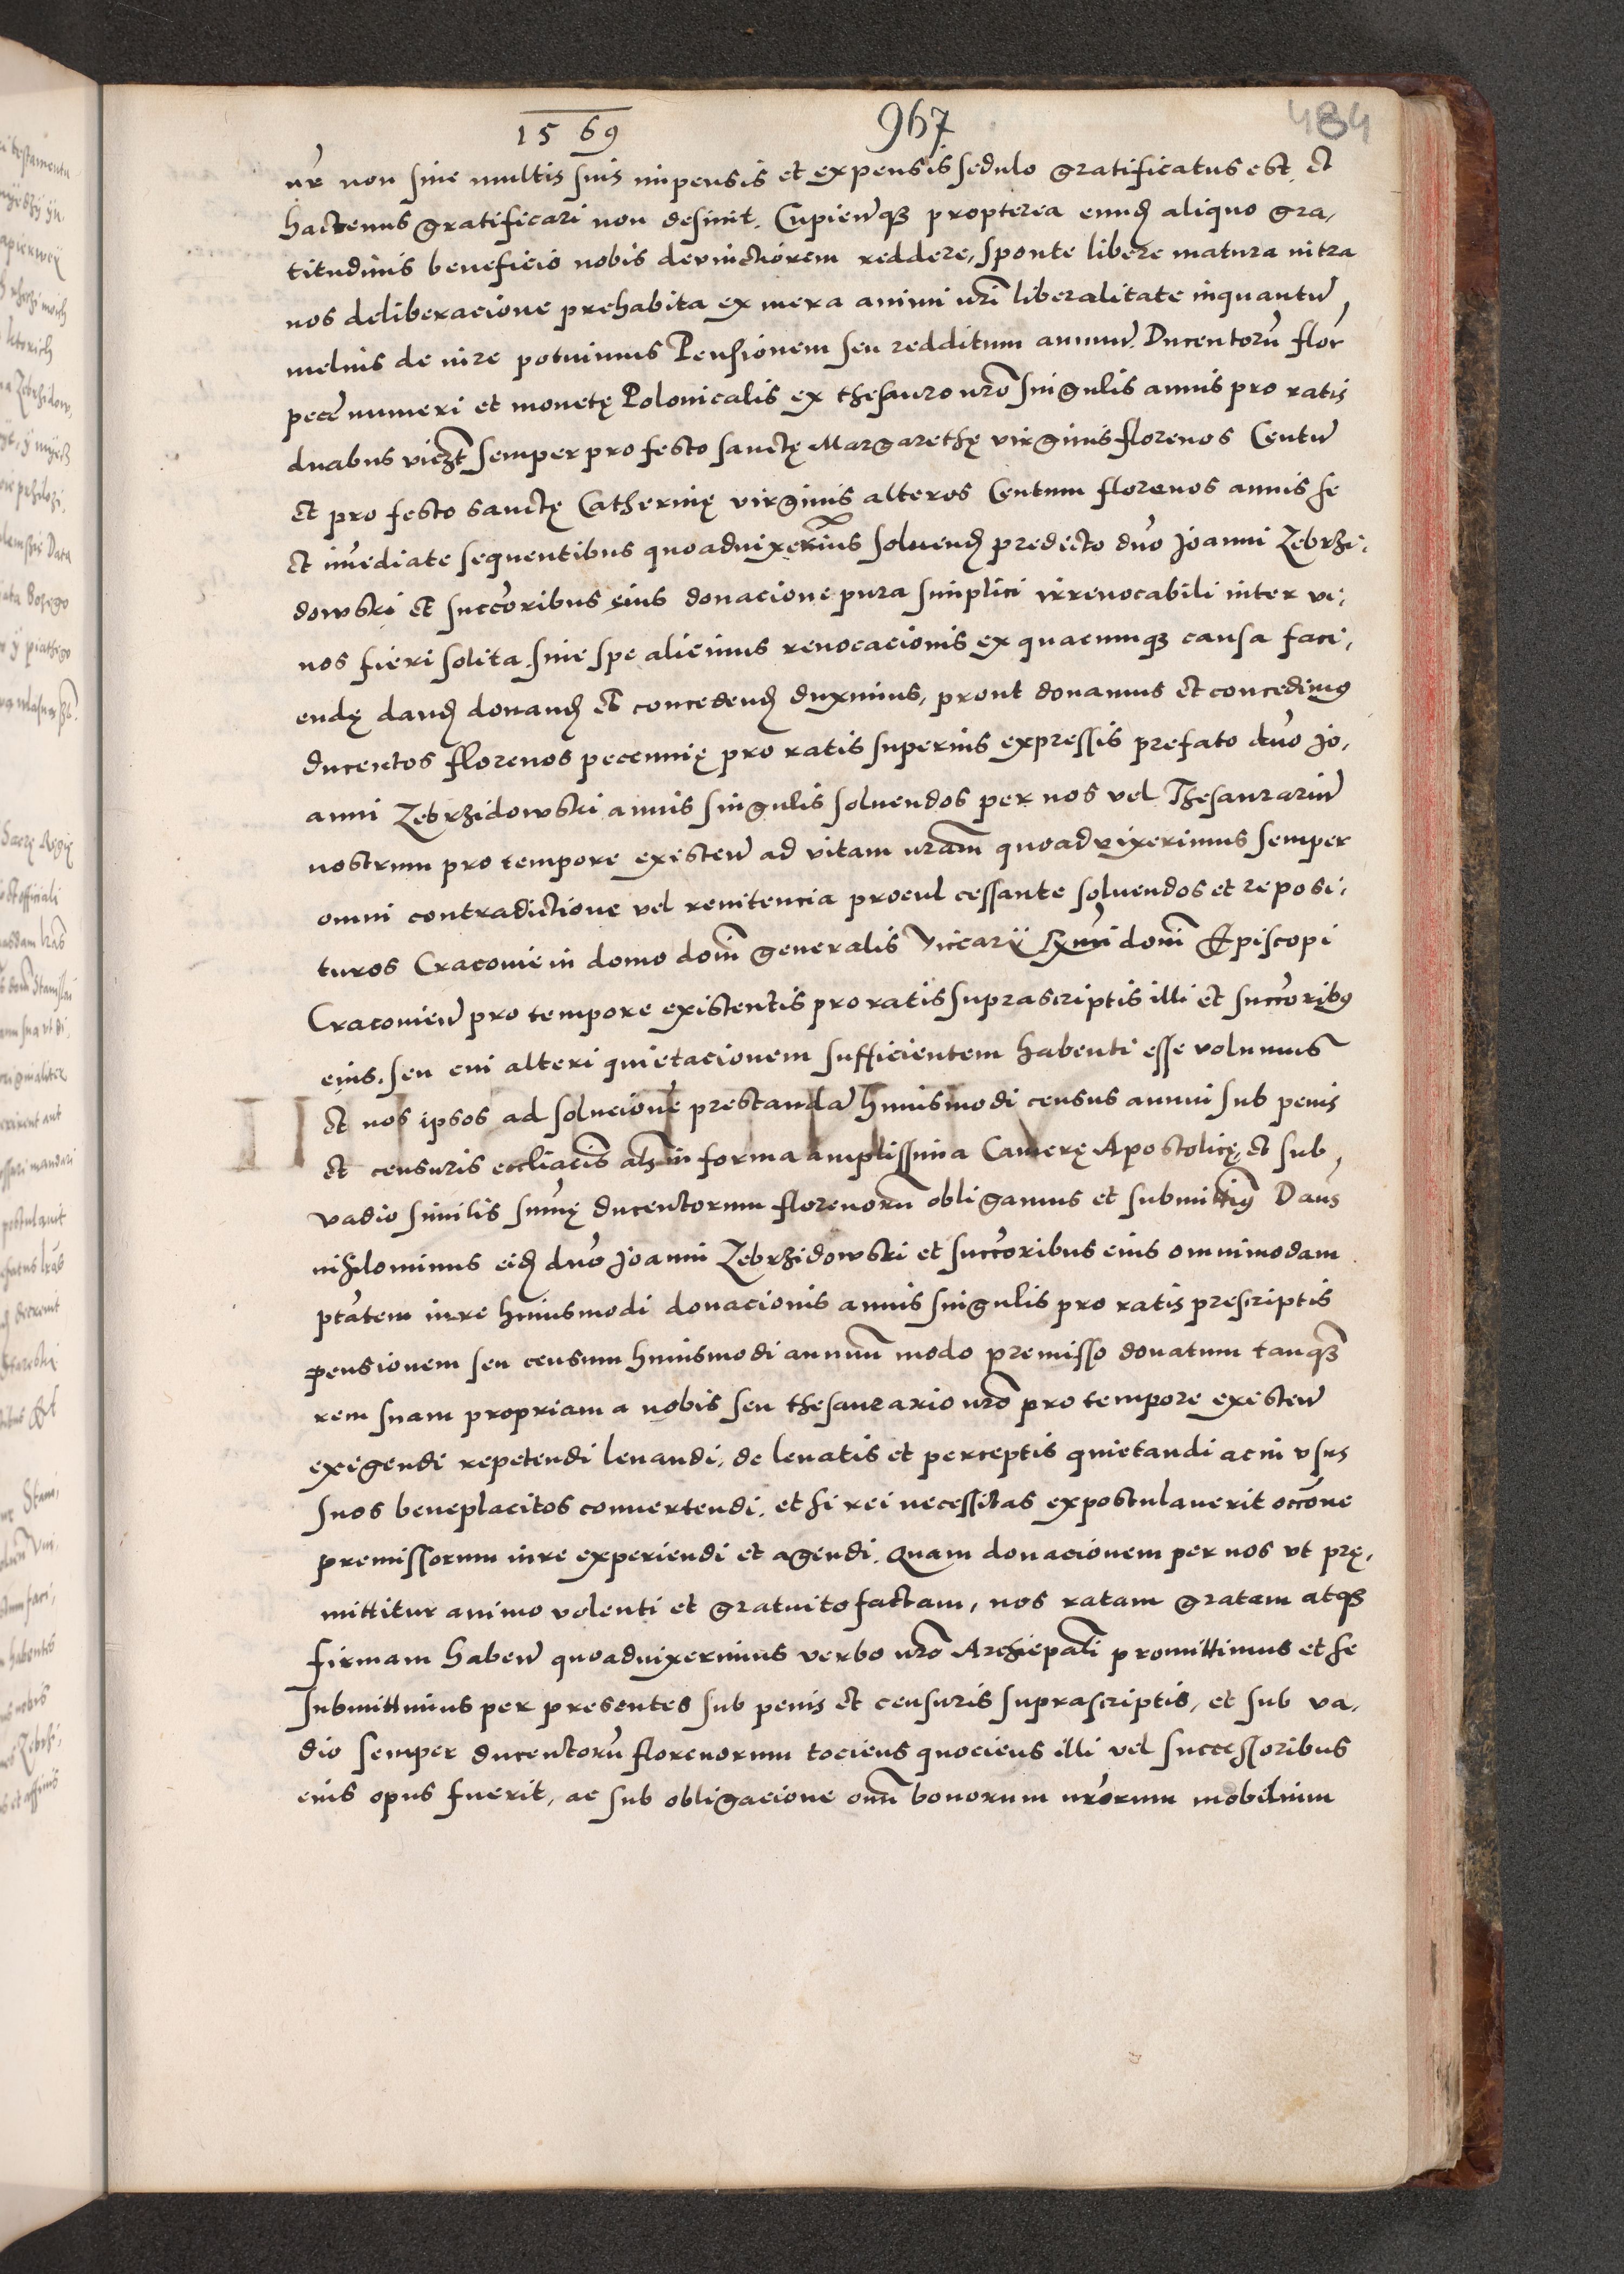 1569 967 484
nr̄ non sine multis suis impensis et expensis sedulo gratificatus est, et
hactenus gratificari non desinit. Cupien̄q̃ propterea eund̃ aliquo gra,
titudinis beneficio nobis devinctiorem reddere, sponte libere matura intra
nos deliberacione prehabita ex mera animi nr̄i liberalitate inquantū
melius de iure potuimus Pensionem seu redditum annuū Ducentorū flor̄
pecū numeri et monetę Polonicalis ex thesauro nr̄o singulis annis pro ratis
duabus viczt semper pro festo sanctę Margarethę virginis florenos Centū
et pro festo sanctę Catherinę virginis alteros Centum florenos annis se
et imēdiate sequentibus quoaduixerimus soluend̃ predicto dn̄o Joanni Zebrzi,
dowski et succoribus eius donacione pura simplici irreuocabili inter vi,
uos fieri solita sine spe alicuius reuocacionis ex quacumq̃ causa faci,
endę dand̃ donand̃ et concedend̃ duximus, prout donamus et concedimus
ducentos florenos pecunię pro ratis superius expressis prefato dn̄o Jo,
anni Zebrzidowski annis singulis soluendos per nos vel Thesaurariū
nostrum pro tempore existen̄ ad vitam nr̄am quoad vixerimus semper
omni contradictione vel renitencia procul cessante soluendos et reposi,
turos Cracouie in domo dom̄i generalis Vicearij Rxm̄i dom̄i Episcopi
Cracouien̄ pro tempore existentis pro ratis suprascriptis illi et succoribus
eius, seu cui alteri quietacionem sufficientem habenti esse volumus
et nos ipsos ad solucionē prestandā huiusmodi census annui sub penis
et censuris eccliacis als in forma amplissima Camerę Apostolicę, et sub
vadio similis sum̄ę ducentorum florenorū obligamus et submittimus Dan̄s
nihilominus eid̃ dn̄o Joanni Zebrzidowski et succoribus eius omnimodam
ptātem iure huiusmodi donacionis annis singulis pro ratis prescriptis
pensionem seu censum huiusmodi annuū modo premisso donatum tanq̃
rem suam propriam a nobis seu thesaurario nr̄o pro tempore existen̄
exigendi repetendi leuandi, de leuatis et perceptis quietandi ac in vsus
suos beneplacitos conuertendi, et si rei necessitas expostulauerit occōne
premissorum iure experiendi et agendi. Quam donacionem per nos vt prę,
mittitur animo volenti et gratuito factam, nos ratam gratam atq̃
firmam haben̄ quoaduixerimus verbo nr̄o Archiepāli promittimus et se
submittimus per presentes sub penis et censuris suprascriptis, et sub va,
dio semper ducentorū florenorum tociens quociens illi vel successoribus
eius opus fuerit, ac sub obligacione om̄i bonorum nr̄orum mobilium